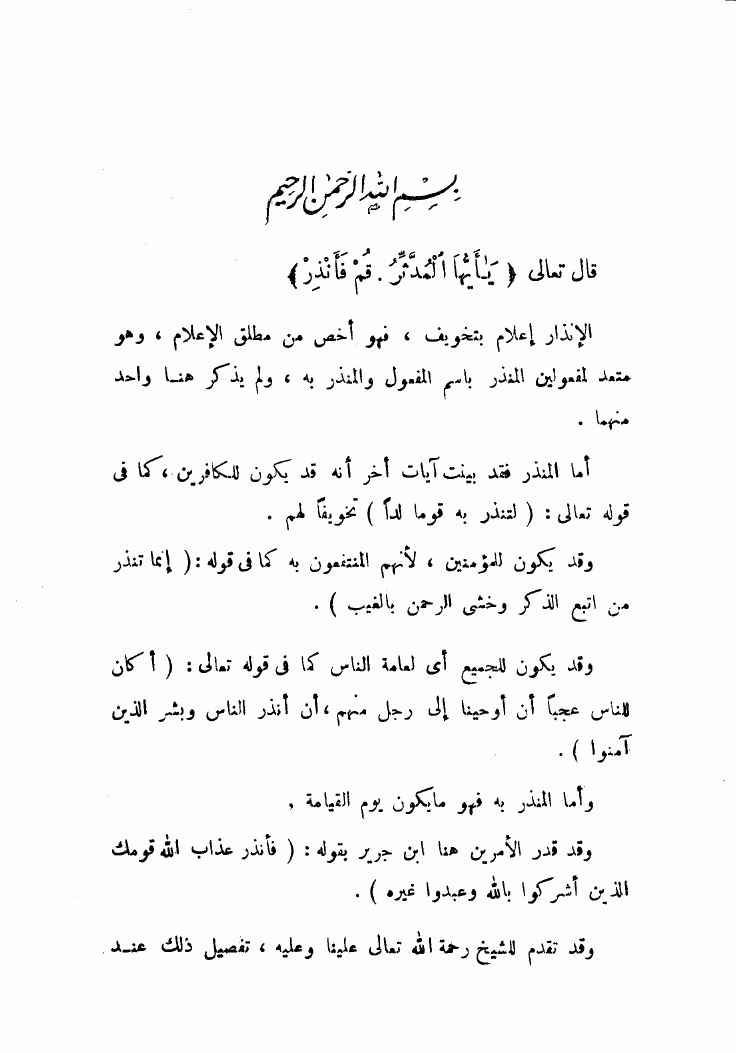 بسم الله الرحمن الرحيم
قال تعالى ﴿ يَٰأَيُّهَا ٱلْمُدَّثِّرُ . قُمْ فَأَنْذِرْ ﴾
الإنذار إعلام بتخويف ، فهو أخص من مطلق الإعلام ، وهو
متعد لمفعولين المنذر باسم المفعول والمنذر به ، ولم يذكر هنا واحد
منهما .
أما المنذر فقد بينت آيات أخر أنه قد يكون للكافرين ، كما فى
قوله تعالى : ( لتنذر به قوما لداً ) تخويفاً لهم .
وقد يكون للمؤمنين ، لأنهم المنتفعون به كما فى قوله : ( إنما تنذر
من اتبع الذكر وخشى الرحمن بالغيب ) .
وقد يكون للجميع أى لعامة الناس كما فى قوله تعالى : ( أكان
للناس عجباً أن أوحينا إلى رجل منهم ، أن أنذر الناس وبشر الذين
آمنوا ) .
وأما المنذر به فهو مايكون يوم القيامة ,
وقد قدر الأمرين هنا ابن جرير بقوله : ( فأنذر عذاب الله قومك
الذين أشركوا بالله وعبدوا غيره ) .
وقد تقدم للشيخ رحمة الله تعالى علينا وعليه ، تفصيل ذلك عند